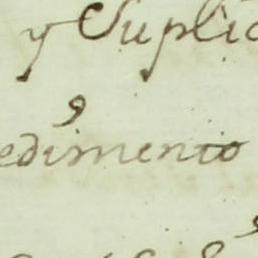 y Suplic
edimento